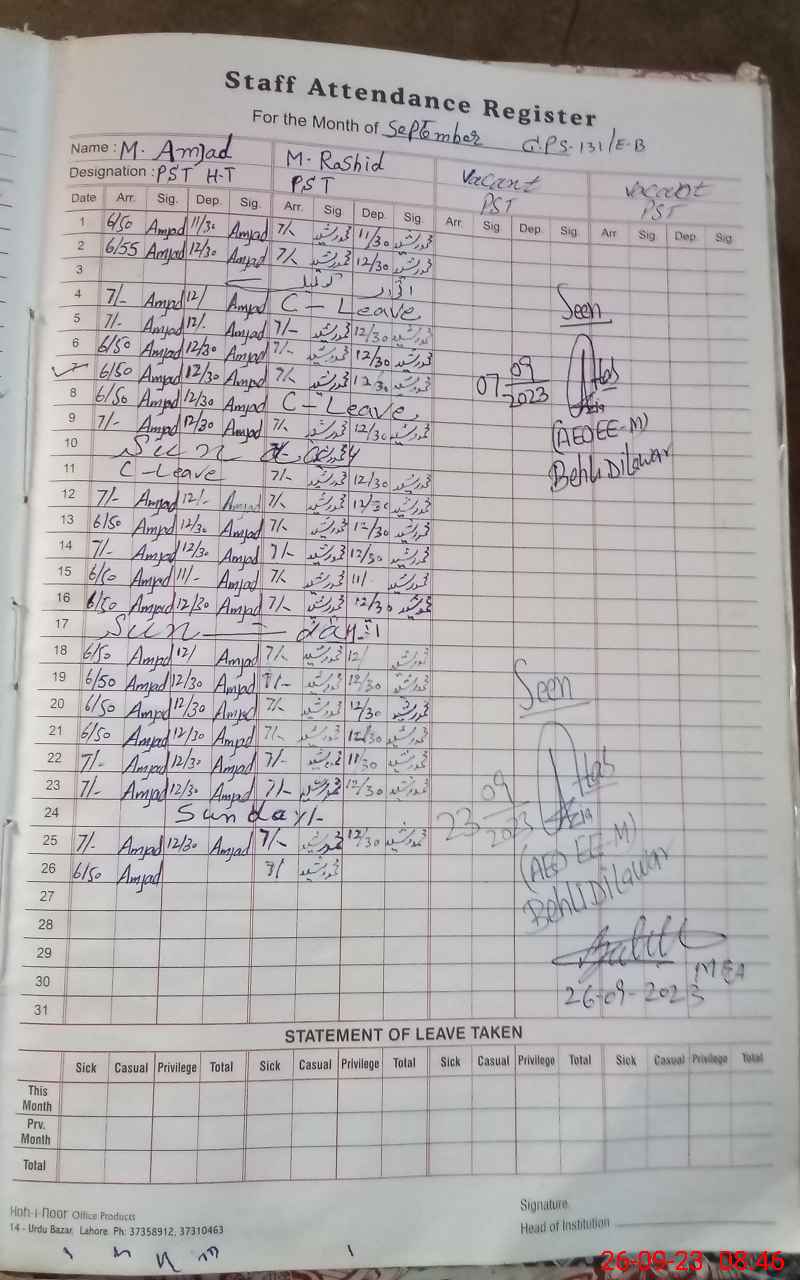 Staff Attendance Register
For the Month of September G.P.S-131/E-B
Name : M. Amjad M. Rashid Vacant Vacant
Designation : PST H-T PST PST PST
Date Arr. Sig. Dep. Sig. Arr. Sig Dep. Sig Arr. Sig Dep. Sig. Arr Sig. Dep. Sig
1 6/50 Amjad 11/30 Amjad 7/- محمد رشید 11/30 محمد رشید
2 6/55 Amjad 12/30 Amjad 7/- محمد رشید 12/30 محمد رشید
3 اتوار
4 7/- Amjad 12/ Amjad C-Leave
5 7/- Amjad 12/. Amjad 7/- محمد رشید 12/30 محمد رشید
6 6/50 Amjad 12/30 Amjad 7/- محمد رشید 12/30 محمد رشید
7 6/50 Amjad 12/30 Amjad 7/- محمد رشید 12/30 محمد رشید
8 6/50 Amjad 12/30 Amjad C-Leave
9 7/- Amjad 12/30 Amjad 7/- محمد رشید 12/30 محمد رشید
10 Sun
11 C-Leave 7/- محمد رشید 12/30 محمد رشید
12 7/- Amjad 12/- Amjad 7/- محمد رشید 12/30 محمد رشید
13 6/50 Amjad 12/30 Amjad 7/- محمد رشید 12/30 محمد رشید
14 7/- Amjad 12/30 Amjad 7/- محمد رشید 12/30 محمد رشید
15 6/50 Amjad 11/- Amjad 7/- محمد رشید 11/- محمد رشید
16 6/50 Amjad 12/30 Amjad 7/- محمد رشید 12/30 محمد رشید
17 Sun day
18 6/50 Amjad 12/ Amjad 7/- محمد رشید 12/ محمد رشید
19 6/50 Amjad 12/30 Amjad 7/- محمد رشید 12/30 محمد رشید
20 6/50 Amjad 12/30 Amjad 7/- محمد رشید 12/30 محمد رشید
21 6/50 Amjad 12/30 Amjad 7/- محمد رشید 12/30 محمد رشید
22 7/- Amjad 12/30 Amjad 7/- محمد رشید 11/30 محمد رشید
23 7/- Amjad 12/30 Amjad 7/- محمد رشید 12/30 محمد رشید
24 Sunday/-
25 7/- Amjad 12/30 Amjad 7/- محمد رشید 12/30 محمد رشید
26 6/50 Amjad 7/ محمد رشید
27
28
29
30
31
Seen
07 09 2023
(AEO EE-M)
Behli Dilawar
Seen
23 09 2023
(AEO EE-M)
Behli Dilawar
MEA
26-09-2023
STATEMENT OF LEAVE TAKEN
Sick Casual Privilege Total Sick Casual Privilege Total Sick Casual Privilege Total Sick Casual Privilege Total
This Month
Prv. Month
Total
Hoh-i-noor Office Products
14 - Urdu Bazar, Lahore. Ph: 37358912, 37310463
Signature
Head of Institution
26-09-23 08:46